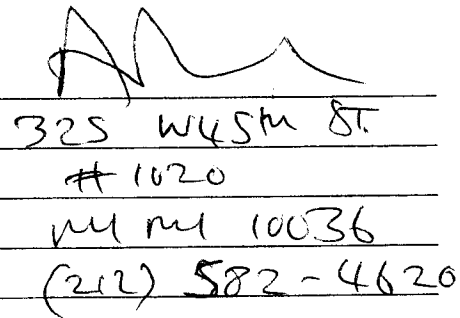 325 W45th ST.
# 1020
NY NY 10036
(212) 582-4620